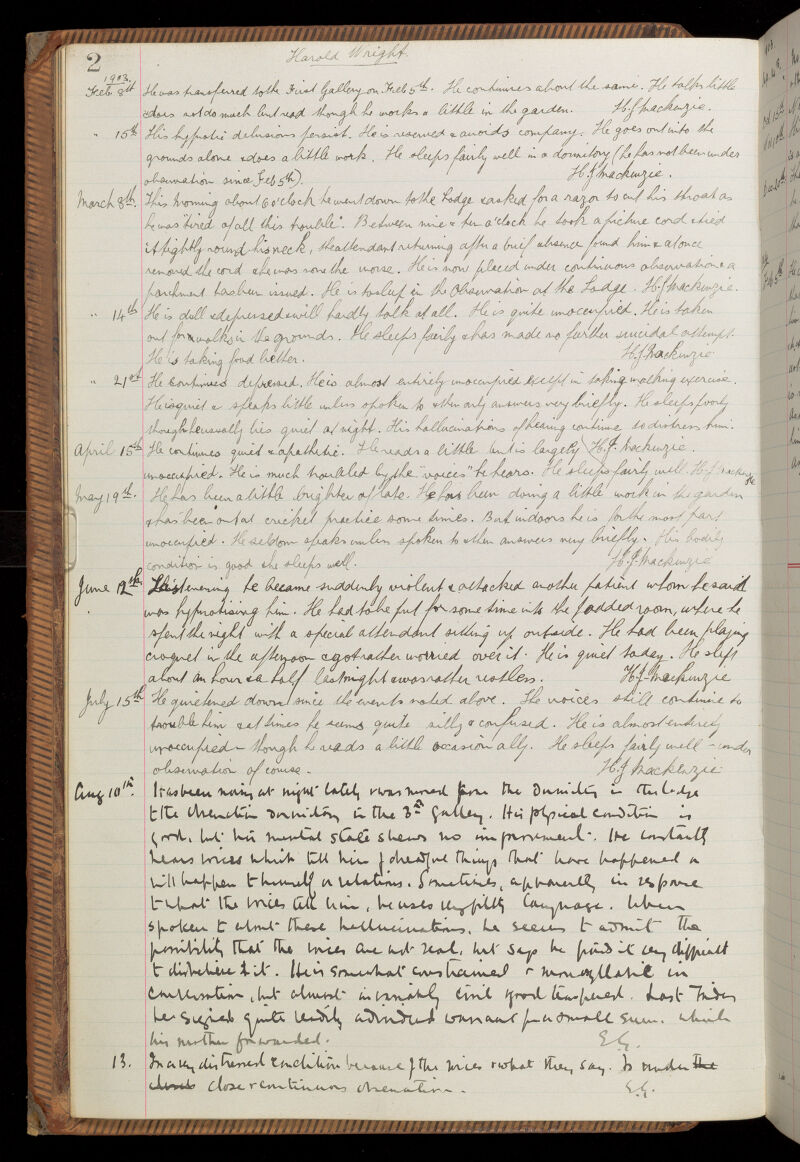 2
Harold Wright.
1903.
Feb 8th He was transferred to the First Gallery on Feb 5th. He continues about the same. He talks little
& does not do much but read though he works a little in the garden. H.J. Mackenzie.
" 15th His hypnotic delusions persist. He is reserved & avoids company. He goes out into the
grounds alone & does a little work. He sleeps fairly well in a dormitory (he has not been under
observation since Feb 5th). H.J. Mackenzie.
March 8th. This morning about 6 o'clock he went down to the Lodge & asked for a razor to cut his throat as
he was "tired of all this trouble". Between nine & ten o'clock he took a picture cord & tied
it tightly round his neck, the attendant returning after a brief absence found him & at once
removed the cord & he was none the worse. He is now placed under continuous observation & a
parchment has been issued. He is to sleep in the Observation at the Lodge. H.J. Mackenzie.
" 14th He is dull & depressed & will hardly talk at all. He is quite unoccupied. He is taken
out for walks in the grounds. He sleeps fairly & has made no further suicidal attempt.
He is taking food better. H.J. Mackenzie
" 21st He continues depressed. He is almost entirely unoccupied except in taking walking exercise.
He is quiet & speaks little unless spoken to & then only answers very briefly. He sleeps poorly
though he usually lies quiet at night. His hallucinations of hearing continue to distress him.
April 15th He continues quiet & apathetic. He reads a little but is largely H.J. Mackenzie.
unoccupied. He is much troubled by the "voices" he hears. He sleeps fairly well. H.J. Mackenzie
May 19th. He has been a little brighter of late. He has been doing a little work in the garden
& has been out at cricket practice some times. But indoors he is for the most part
unoccupied. He seldom speaks unless spoken to & then answers very briefly. His bodily
condition is good & he sleeps well. H.J. Mackenzie
June 12th. This evening he became suddenly violent & attacked another patient whom he said
was hypnotising him. He had to be put for some time into the padded room, where he
spent the night with a special attendant sitting up outside. He had been playing
croquet in the afternoon & got rather worried over it. He is quiet today. He slept
about an hour & a half last night & was rather restless. H.J. Mackenzie
July 15th He quietened down since the events noted above. The voices still continue to
trouble him & at times he seems quite silly & confused. He is almost entirely
unoccupied – though he reads a little occasionally. He sleeps fairly well – under
observation of course. H.J. Mackenzie
Aug 10th. Has been noisy at night lately & was moved from the Dormitory in the lodge
to the observation dormitory in the 3rd gallery. His physical condition is
good, but his mental state shews no improvement. He constantly
hears voices which tell him of dreadful things that have happened or
will happen to himself or relations. Sometimes, apparently in response
to what the voices tell him, he uses very filthy language. When
spoken to about these hallucinations, he seems to admit the
possibility that the voices are not real, but says he finds it very difficult
to disbelieve it. He is somewhat constrained & monosyllabic in
conversation, but almost invariably civil & good tempered. Last Friday
he signed quite readily a dividend warrant for a small sum, which
his mother forwarded. E.G.
13. In a very distressed condition because of the voices & what they say. Is under the
close close & continuous observation. E.G.